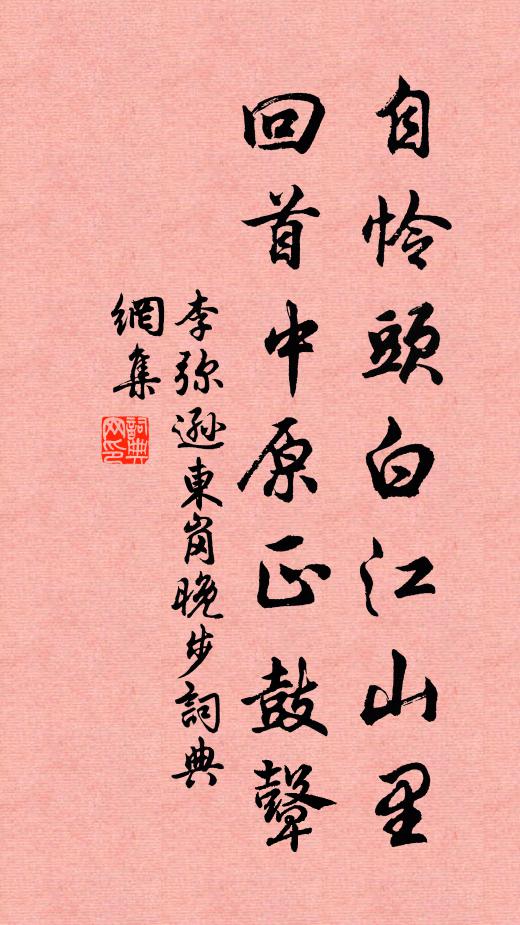 自怜頭白江山里
回首中原正鼓鼙
李弥遜東崗晚步詞典
網集
詞典
网印